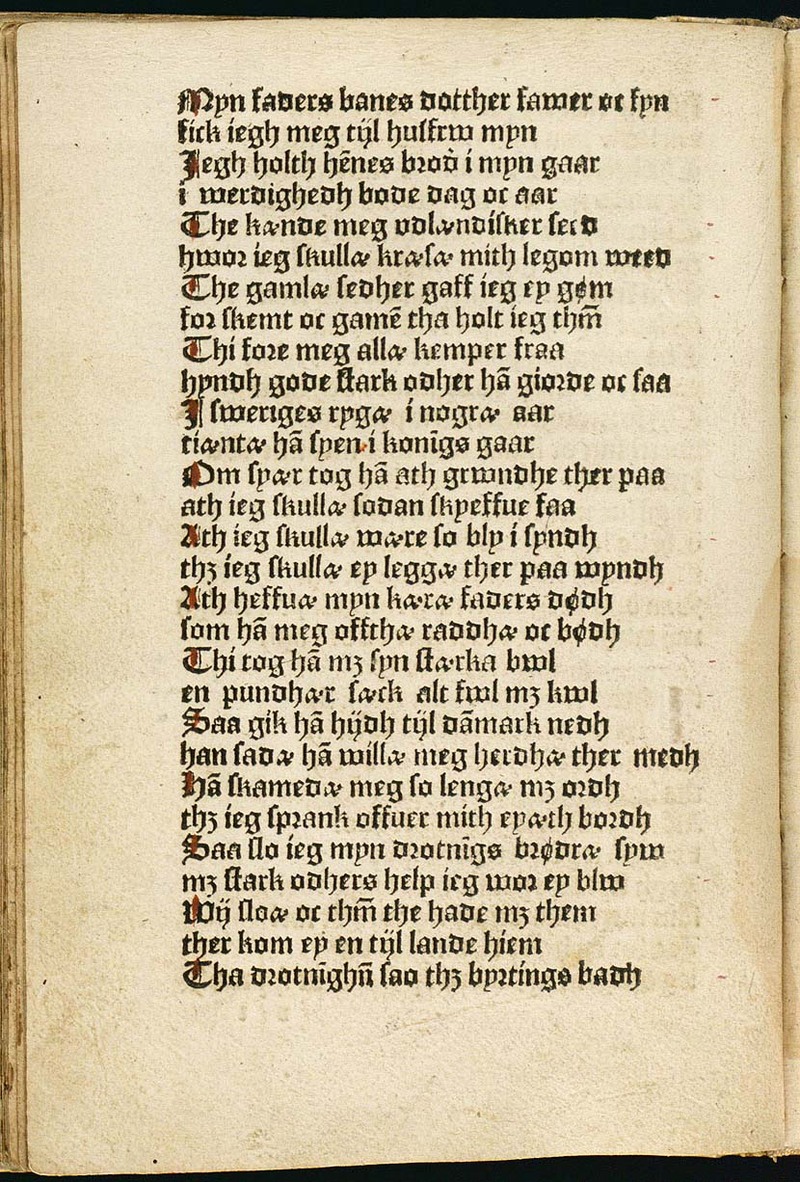 Myn faders banes dotther fawer oc fyn
fick iegh meg tijl husfrw myn
Jegh holth hēnes brodr i myn gaar
i werdighedh bode dag oc aar
The kænde meg vdlændisker seed
hwor ieg skullæ kræsæ mith legom weed
The gamlæ sedher gaff ieg ey gøm
for skemt oc gamē tha holt ieg thm̄
Thi fore meg allæ kemper fraa
hyndh gode stark odher hā giorde oc saa
J sweriges rygæ i nogræ aar
tiæntæ hā syen i konīgs gaar
Om syær tog hā ath grwndhe ther paa
ath ieg skullæ sodan skyeffue faa
Ath ieg skullæ wære so bly i syndh
thꝫ ieg skullæ ey leggæ ther paa wyndh
Ath heffuæ myn kæræ faders dødh
som hā meg offthæ raddhæ oc bødh
Thi tog hā mꝫ syn stærka bwl
en pundhær sæck alt fwl mꝫ kwl
Saa gik hā hijdh tijl dāmark nedh
han sadæ hā willæ meg herdhæ ther medh
Hā skamedæ meg so lengæ mꝫ ordh
thꝫ ieg sprank offuer mith eyæth bordh
Saa slo ieg myn drotnīgs brødræ syw
mꝫ stark odhers help ieg wor ey blw
Wij sloæ oc thm̄ the hade mꝫ them
ther kom ey en tijl lande hiem
Tha drotnīghn̄ sao thꝫ byrtings badh